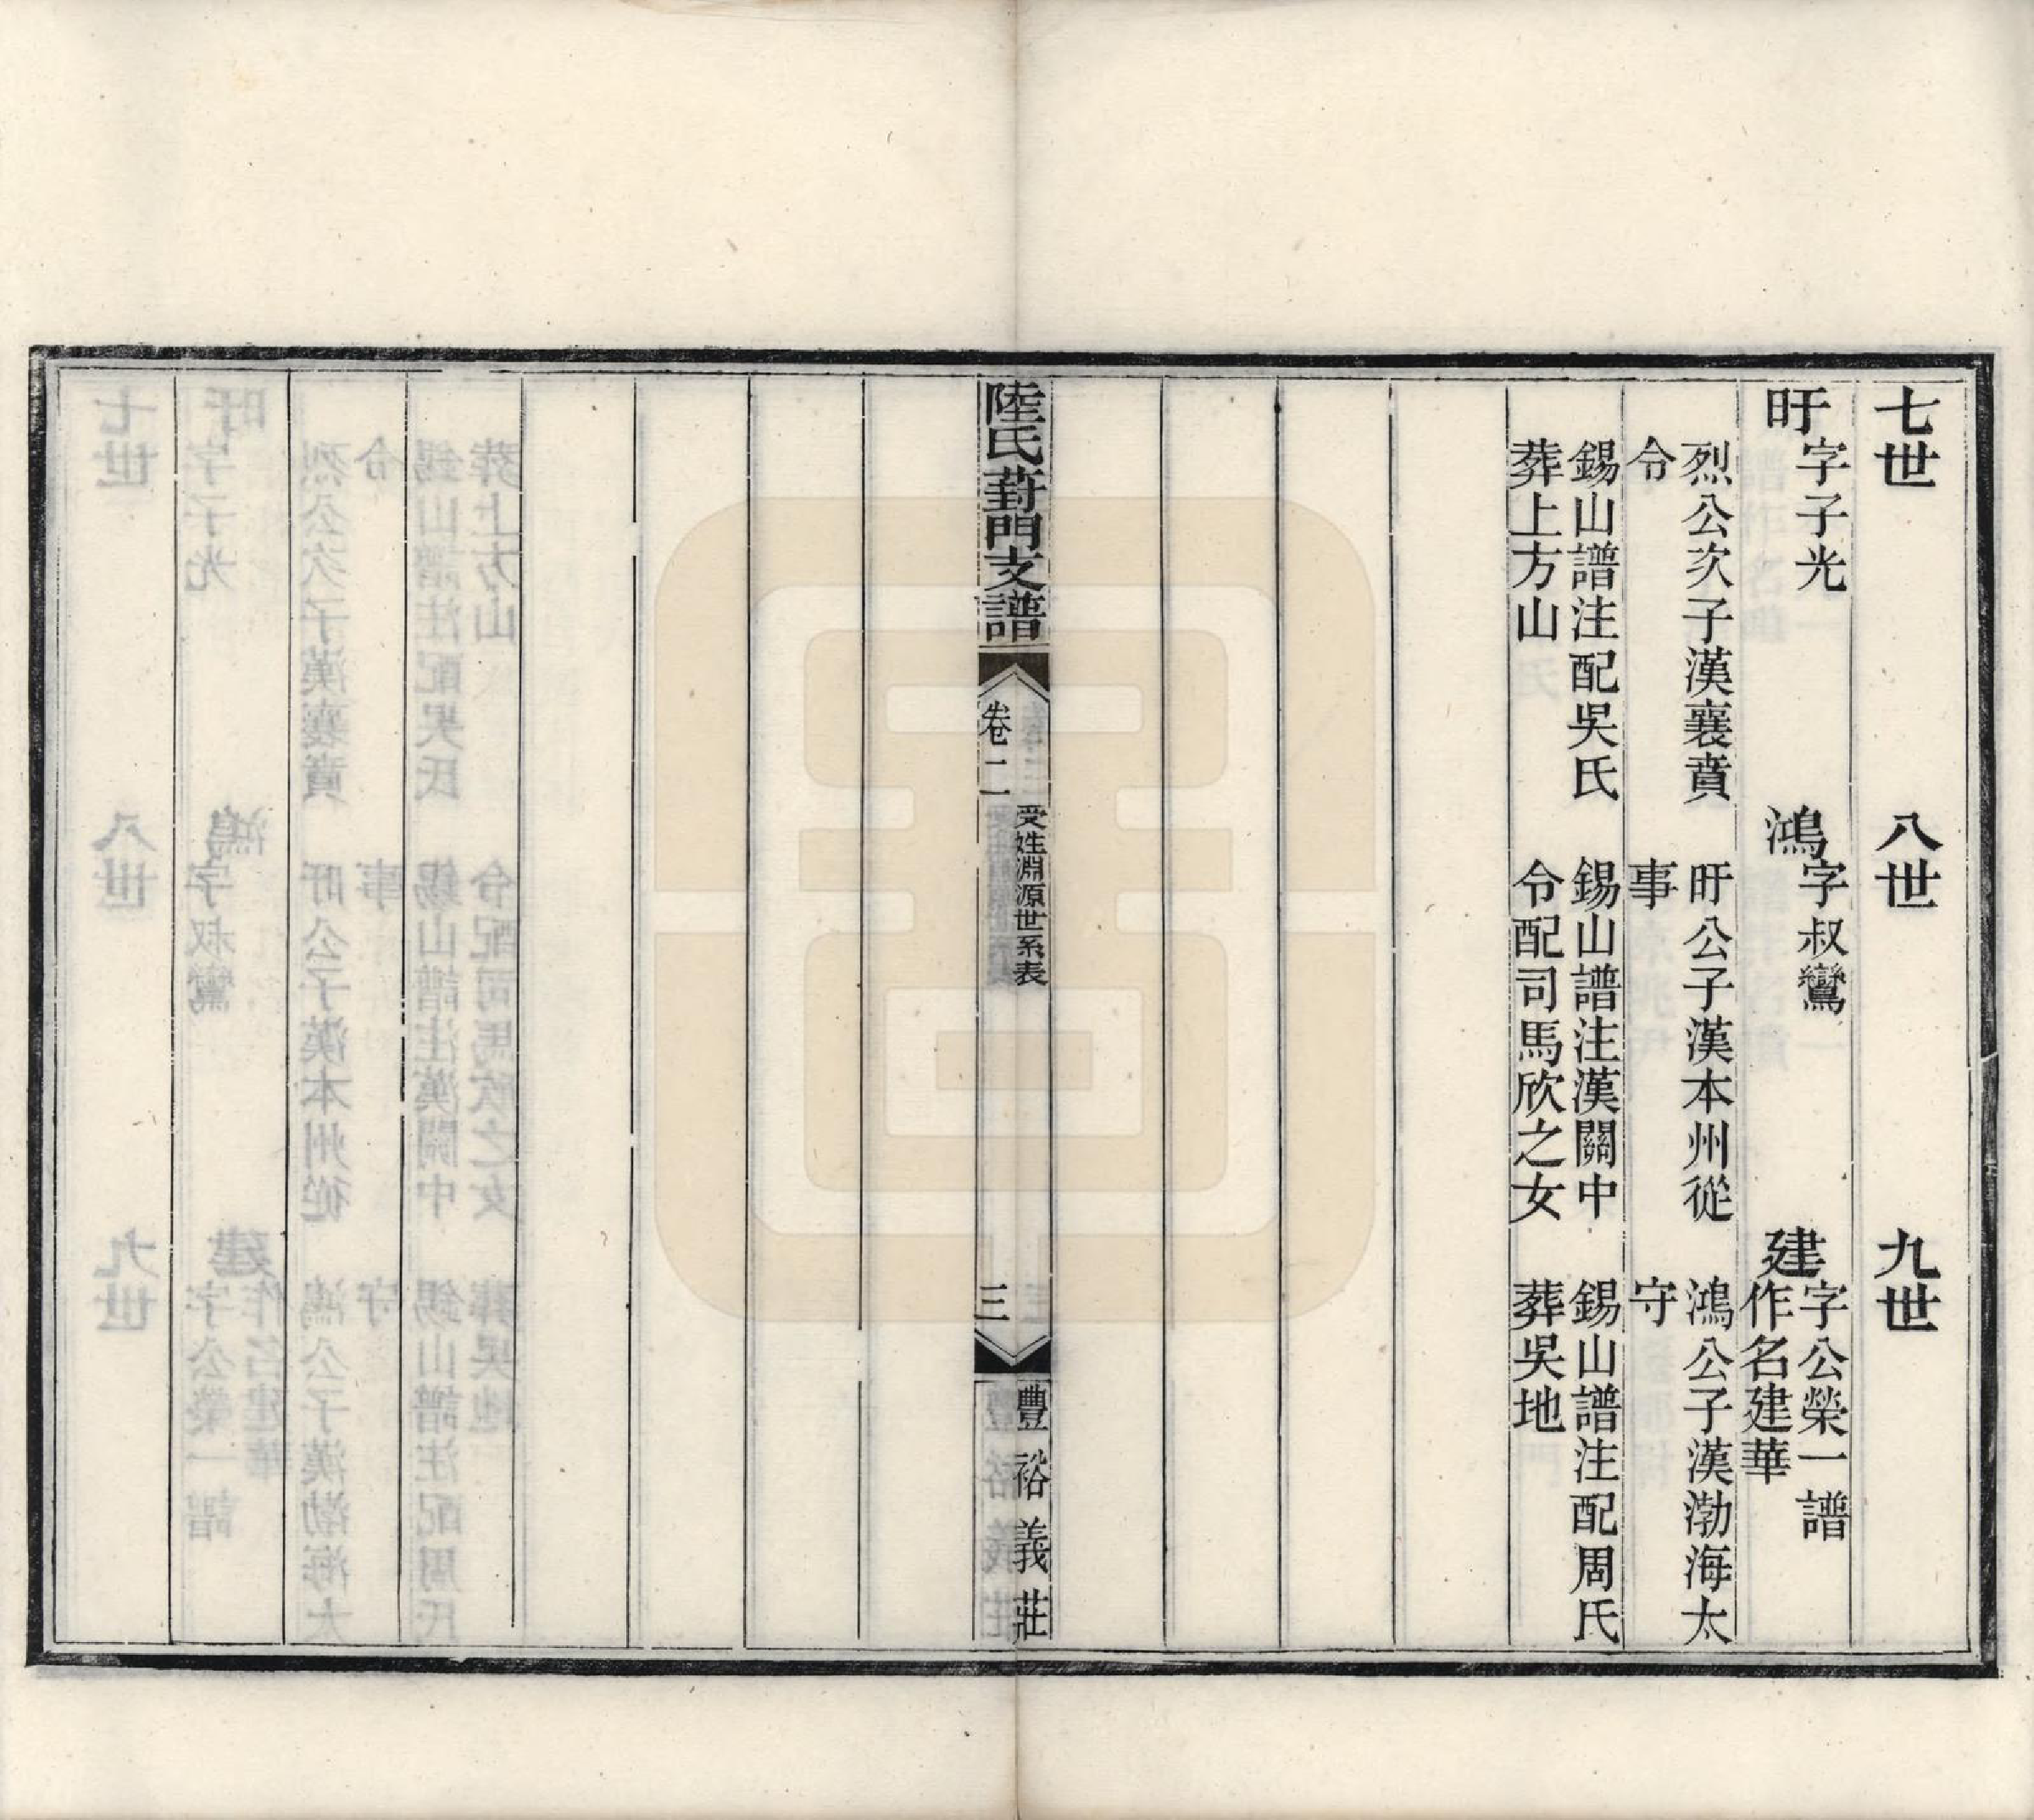 七世
八世
九世
旴
字子光
鴻
字叔鸞
建
字公榮一譜
作名建華
烈公次子漢襄賁
令
旴公子漢本州從
事
鴻公子漢渤海太
守
錫山譜注配吳氏
葬上方山
錫山譜注漢關中
令配司馬欣之女
錫山譜注配周氏
葬吳地
陸氏葑門支譜
卷二
受姓淵源世系表
三
豐裕義莊